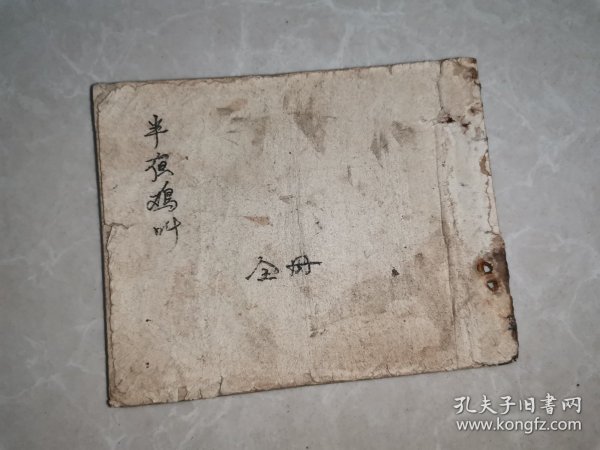 半夜鸡叫
全册
孔夫子旧书网
www.kongfz.com